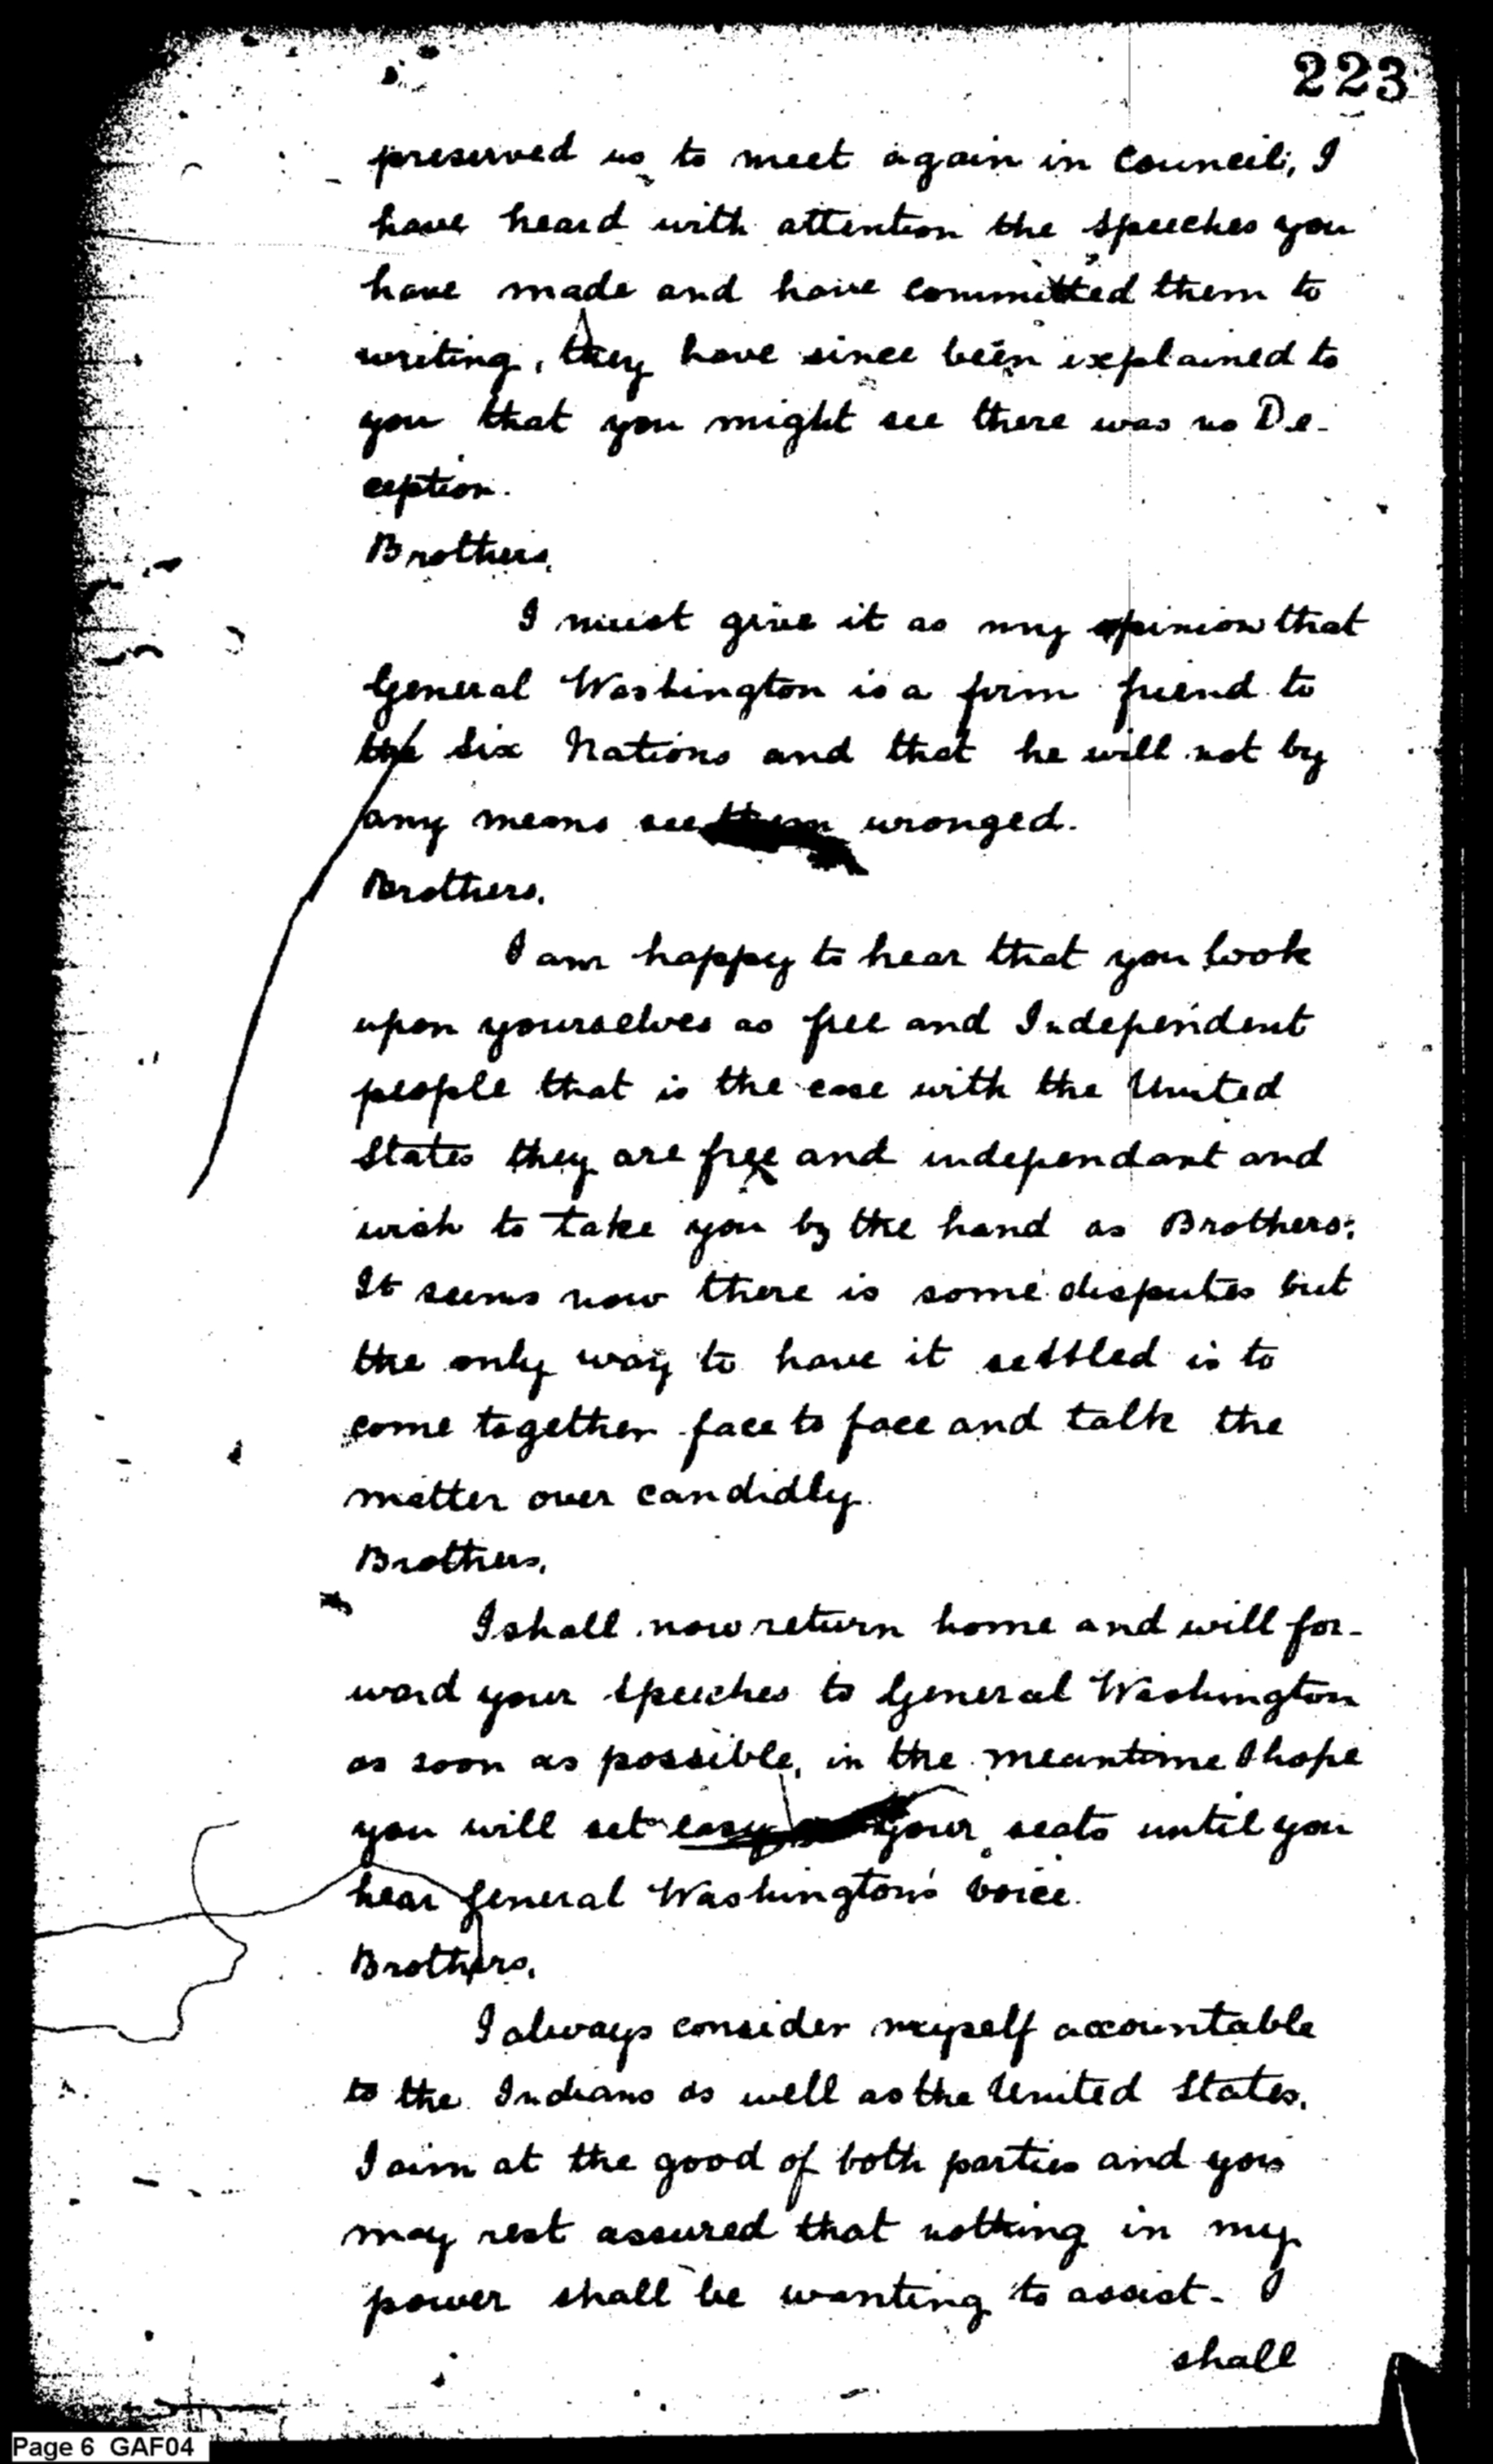 223
preserved us to meet again in Council, I
have heard with attention the Speeches you
have made and have committed them to
writing, they have since been explained to
you that you might see there was no De-
ception.
Brothers,
I must give it as my opinion that
General Washington is a firm friend to
the Six Nations and that he will not by
any means see them wronged.
Brothers,
I am happy to hear that you look
upon yourselves as free and Independent
people that is the case with the United
States they are free and independant and
wish to take you by the hand as Brothers:
It seems now there is some disputes but
the only way to have it settled is to
come together face to face and talk the
matter over candidly.
Brothers,
I shall now return home and will for-
ward your Speeches to General Washington
as soon as possible, in the meantime I hope
you will set easy your seats until you
hear General Washington's voice.
Brothers,
I always consider myself accountable
to the Indians as well as the United States.
I aim at the good of both parties and you
may rest assured that nothing in my
power shall be wanting to assist - I
shall
Page 6 GAF04